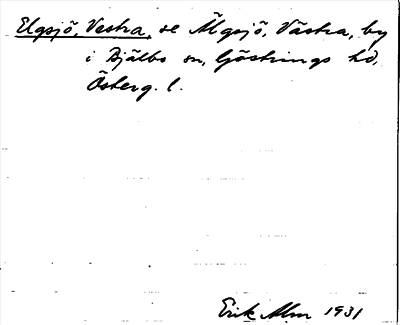 Elgsjö, Vestra, se Älgsjö, Västra, by
i Bjälbo sn, Göstrings hd,
Österg. l.
Erik Alm 1931